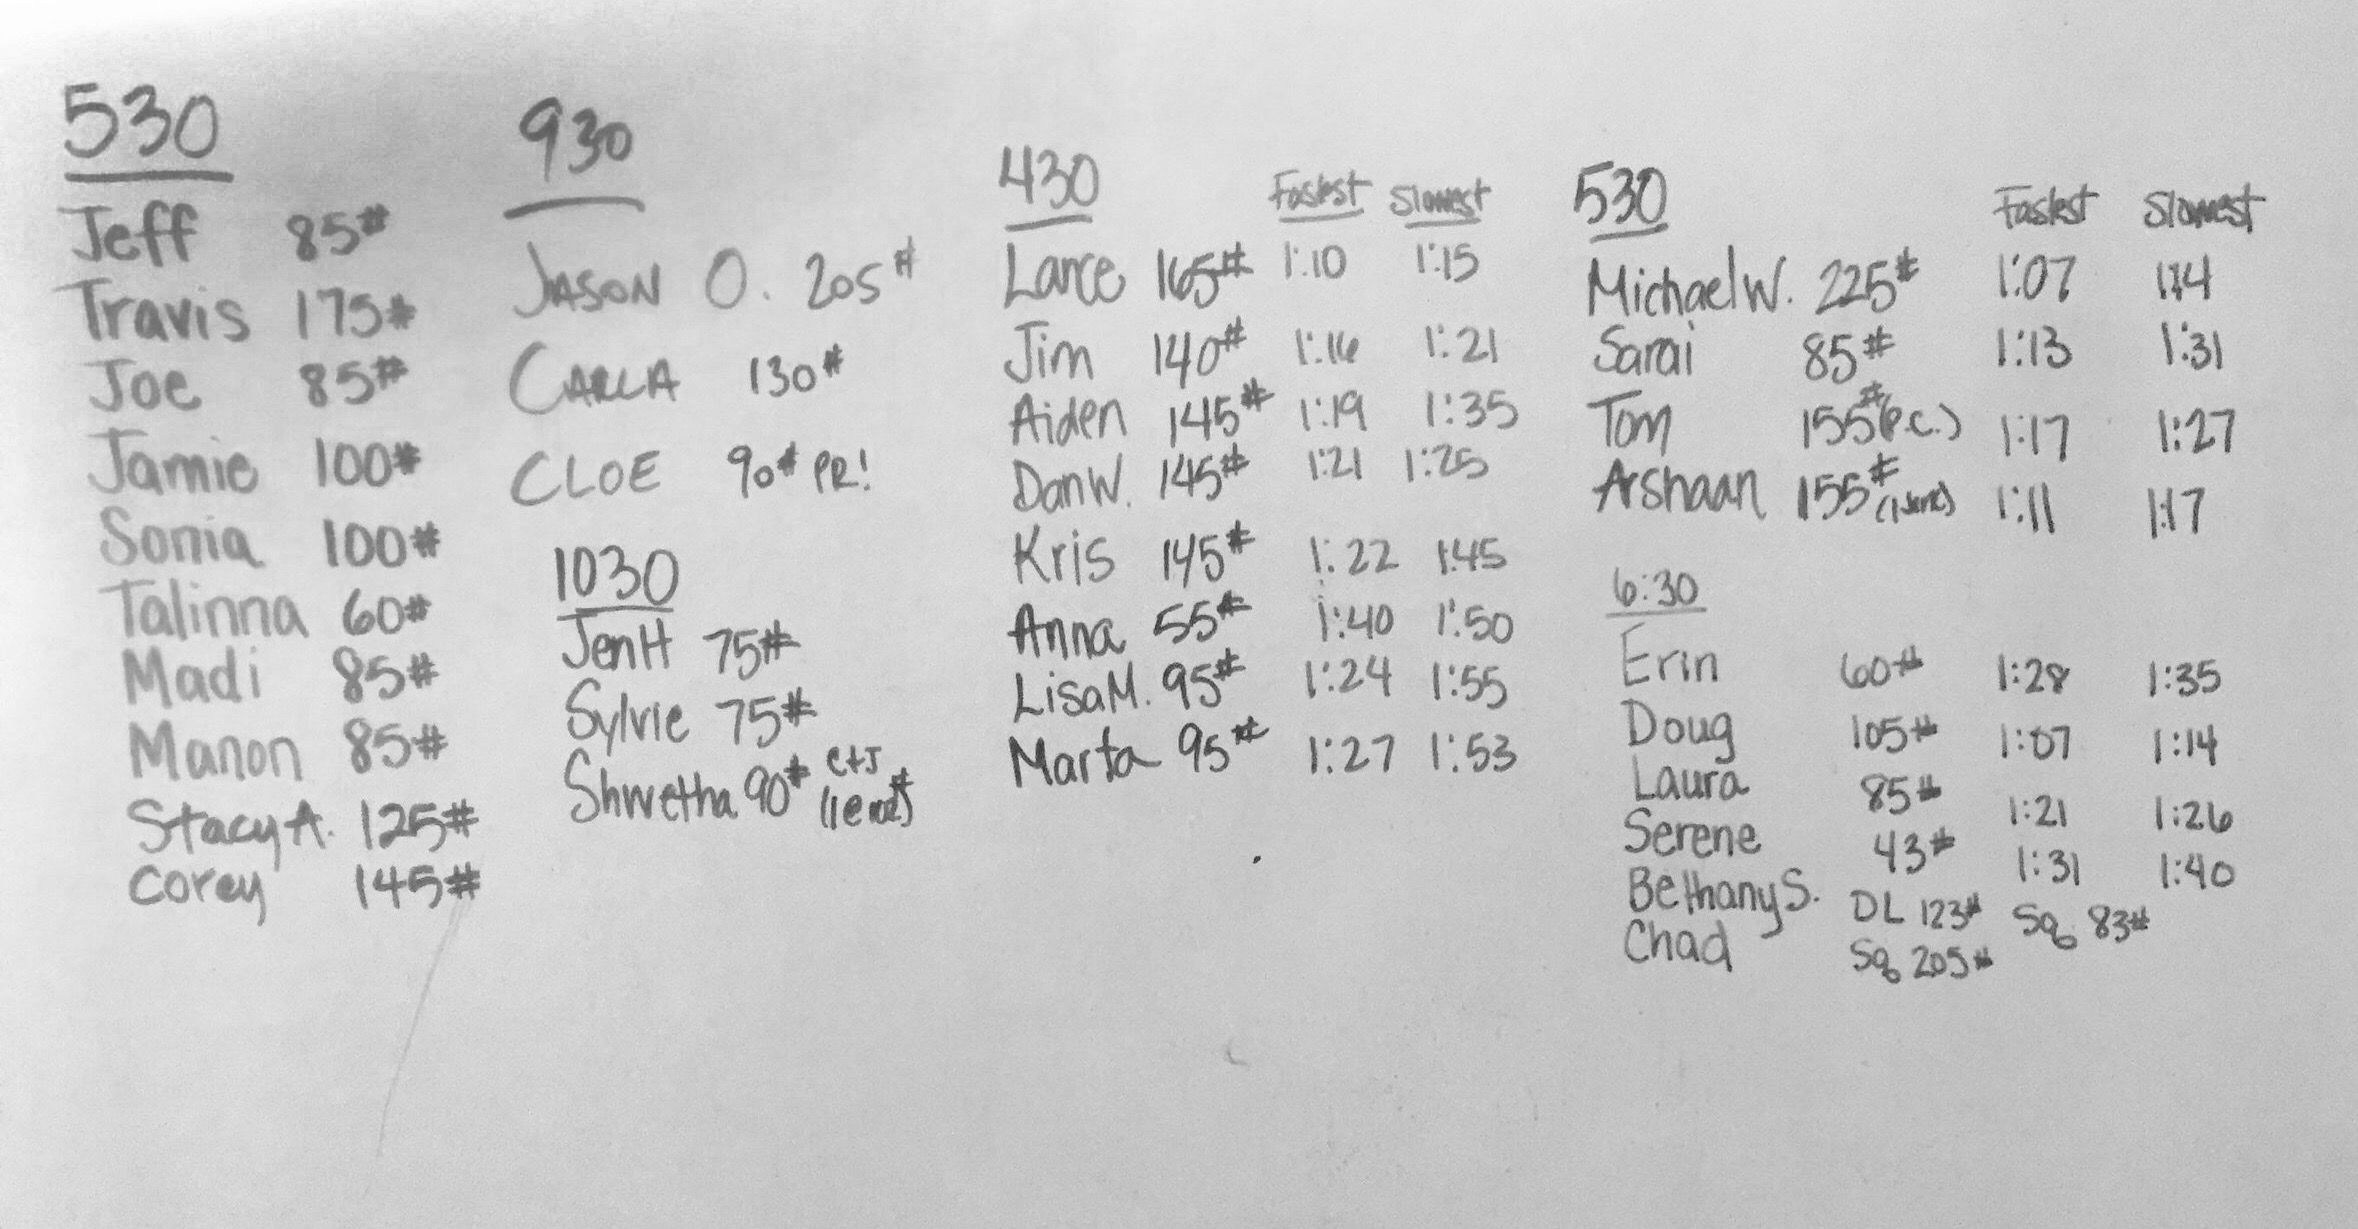 530
Jeff 85#
Travis 175#
Joe 85#
Jamie 100#
Sonia 100#
Talinna 60#
Madi 85#
Manon 85#
Stacy A. 125#
Corey 145#
930
JASON O. 205#
CARLA 130#
CLOE 90# PR!
1030
Jen H 75#
Sylvie 75#
Shwetha 90# C+J
430 Fastest Slowest
Lance 165# 1:10 1:15
Jim 140# 1:16 1:21
Aiden 145# 1:19 1:35
Dan W. 145# 1:21 1:25
Kris 145# 1:22 1:45
Anna 55# 1:40 1:50
Lisa M. 95# 1:24 1:55
Marta 95# 1:27 1:53
530 Fastest Slowest
Michael W. 225# 1:07 1:14
Sarai 85# 1:13 1:31
Tom 155# (P.C.) 1:17 1:27
Arshaan 155# 1:11 1:17
6:30
Erin 60# 1:28 1:35
Doug 105# 1:07 1:14
Laura 85# 1:21 1:26
Serene 43# 1:31 1:40
Bethany S. DL 123# Sq 83#
Chad Sq 205#